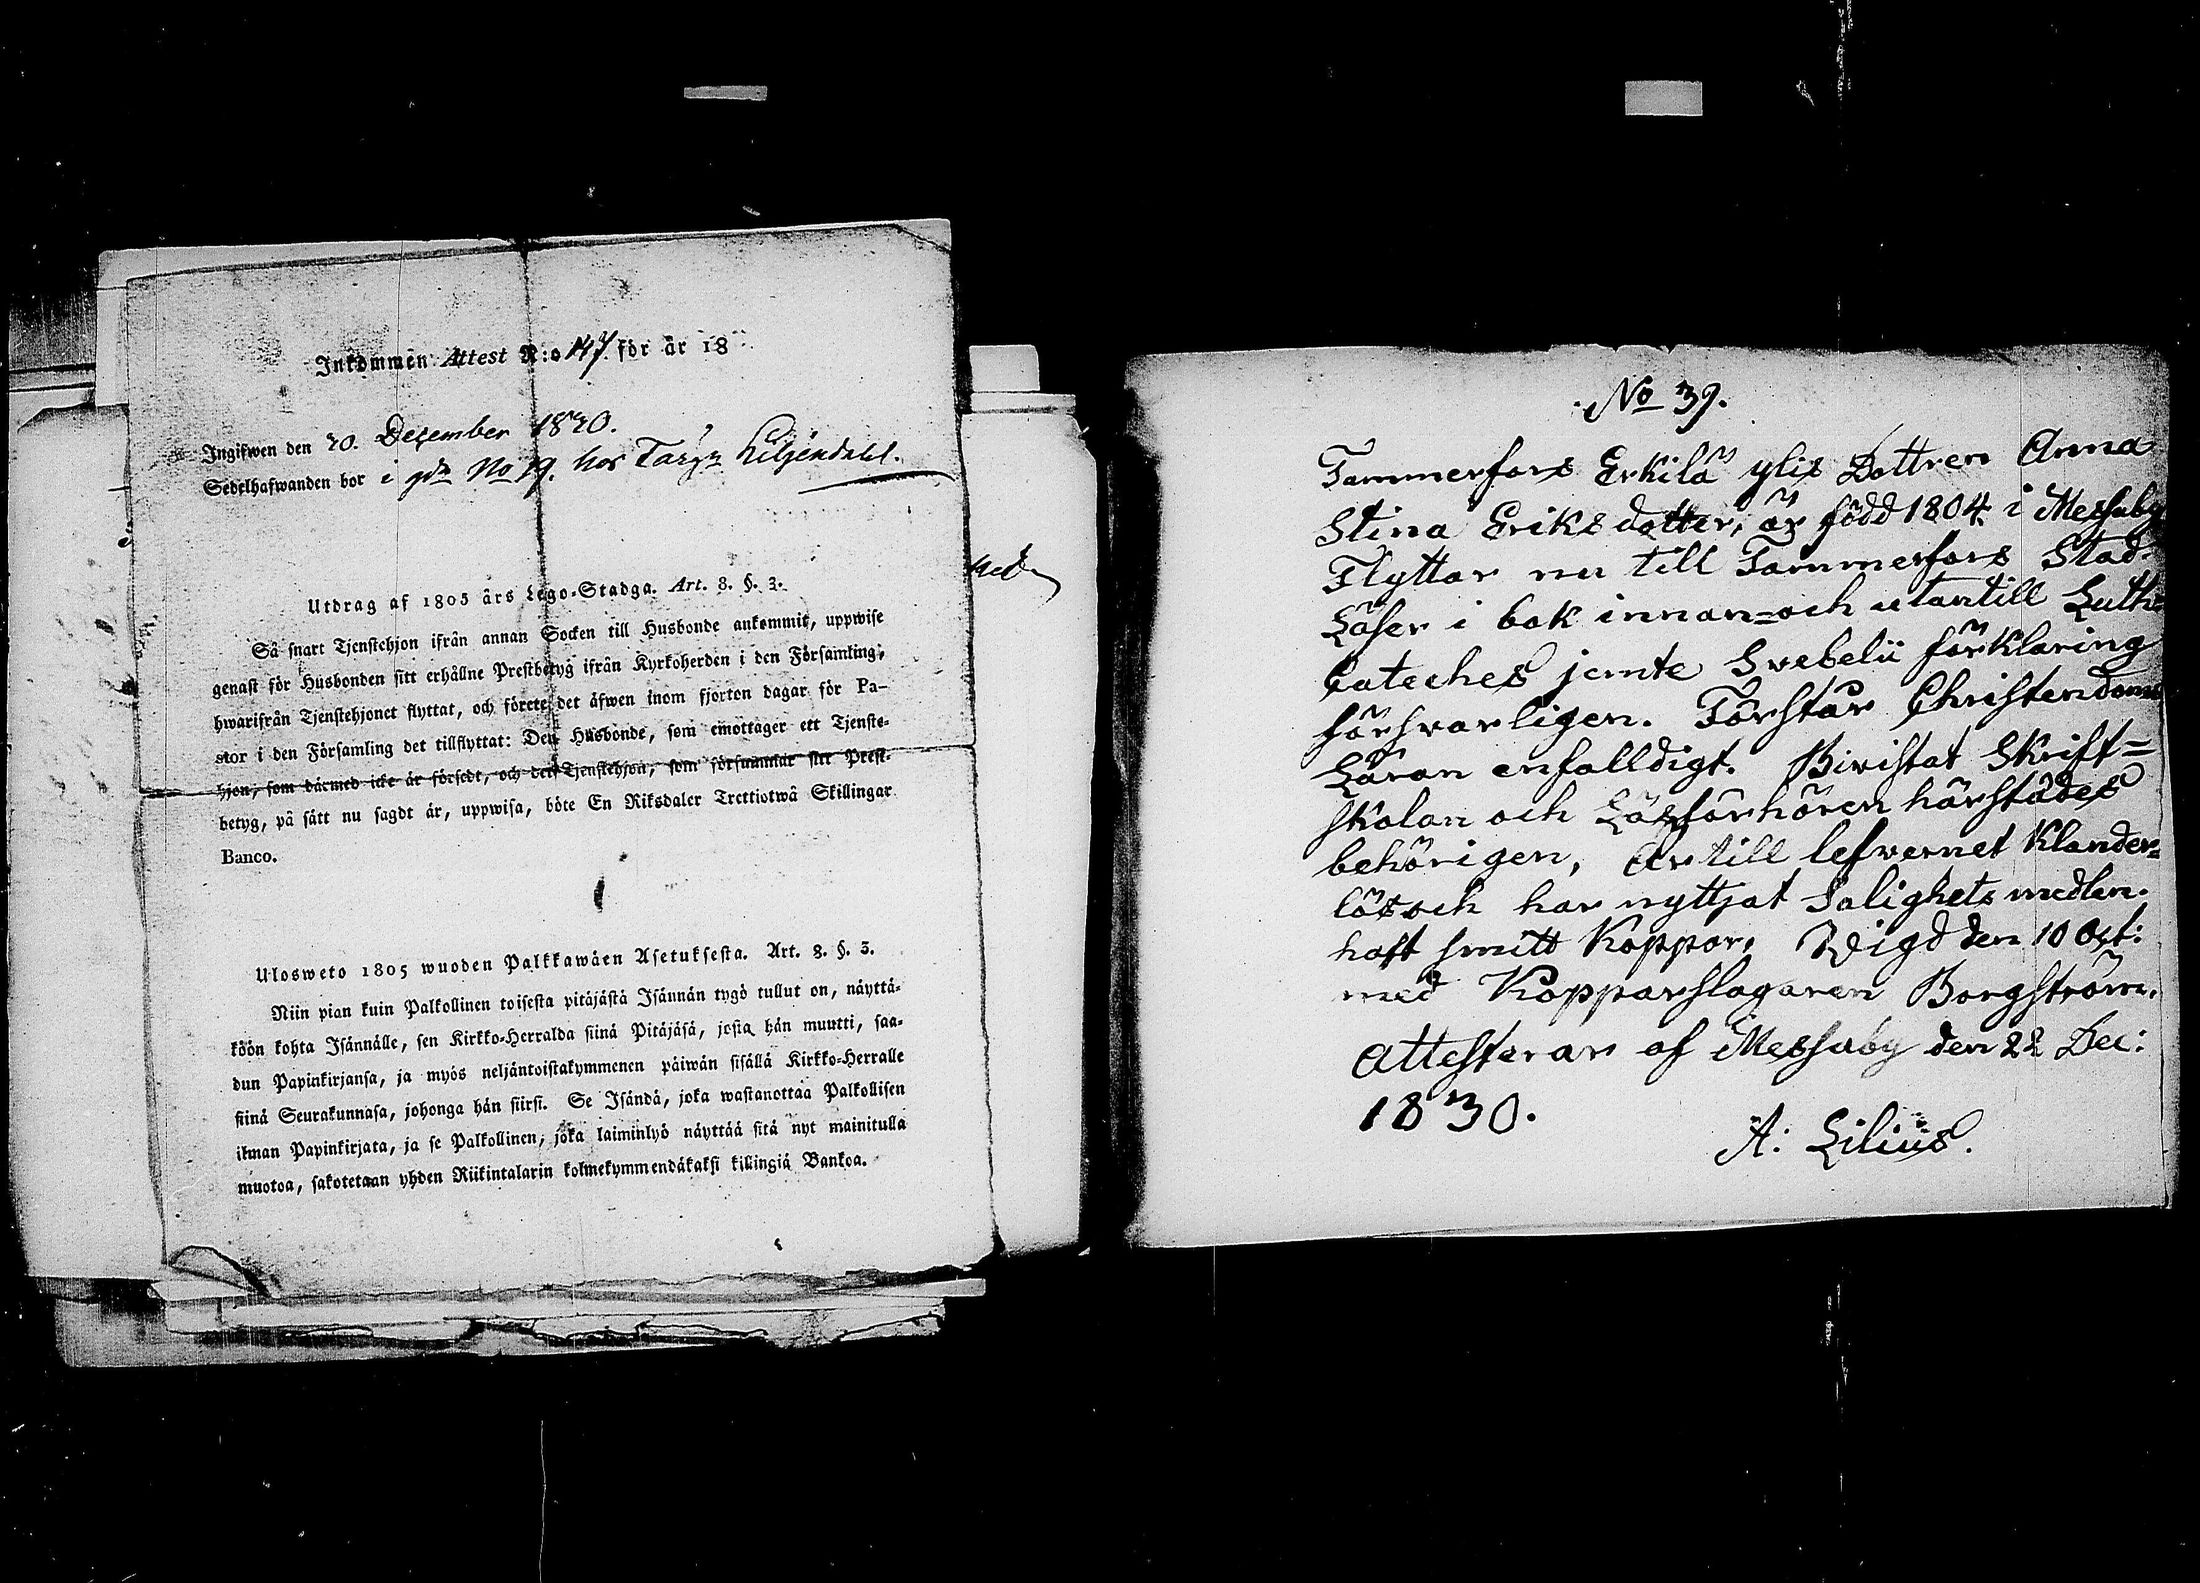 Inkommen Attest N:o 147 för år 18
Ingifwen den 20. December 1830.
Sedelhafwanden bor i gdn No 19. hos Liljendahl.
Utdrag af 1805 års Lego-Stadga. Art. 8. §. 3.
Så snart Tjenstehjon ifrån annan Socken till Husbonde ankommit, uppwise
genast för Husbonden sitt erhållne Prestbetyg ifrån Kyrkoherden i den Församling,
hwarifrån Tjenstehjonet flyttat, och förete det äfwen inom fjorton dagar för Pa-
stor i den Församling det tillflyttat: Den Husbonde, som emottager ett Tjenste-
hjon, som därmed icke är försedt, och det Tjenstehjon, som försummar sitt Prest-
betyg, på sätt nu sagdt är, uppwisa, böte En Riksdaler Trettiotwå Skillingar
Banco.
Ulosweto 1805 wuoden Palkkawäen Asetuksesta. Art. 8. §. 3.
Niin pian kuin Palkollinen toisesta pitäjästä Isännän tygö tullut on, näyttä-
köön kohta Isännälle, sen Kirkko-Herralda siinä Pitäjäsä, josta hän muutti, saa-
dun Papinkirjansa, ja myös neljäntoistakymmenen päiwän sisällä Kirkko-Herralle
siinä Seurakunnasa, johonga hän siirsi. Se Isändä, joka wastanottaa Palkollisen
ilman Papinkirjata, ja se Palkollinen, joka laiminlyö näyttää sitä nyt mainitulla
muotoa, sakotetaan yhden Riikintalarin kolmekymmendäkaksi killingiä Bankoa.
No 39.
Tammerfors Erkilä ylis Dottren Anna
Stina Eriksdotter, är född 1804 i Messuby
Flyttar nu till Tammerfors Stad.
Läser i bok innan=och utantill Luth:
Cateches jemte Svebelii förklaring
försvarligen. Förstår Christendoms
Läran enfalldigt. Bivistat Skrift=
skolan och Läsförhören härstädes
behörigen, Är till lefvernet klander=
lös och har nyttjat Salighets medlen.
haft smitt koppor. Wigd den 10 Oct:
med Kopparslagaren Borgström.
Attesterar af Messuby den 22 Dec:
1830.
A: Lilius.